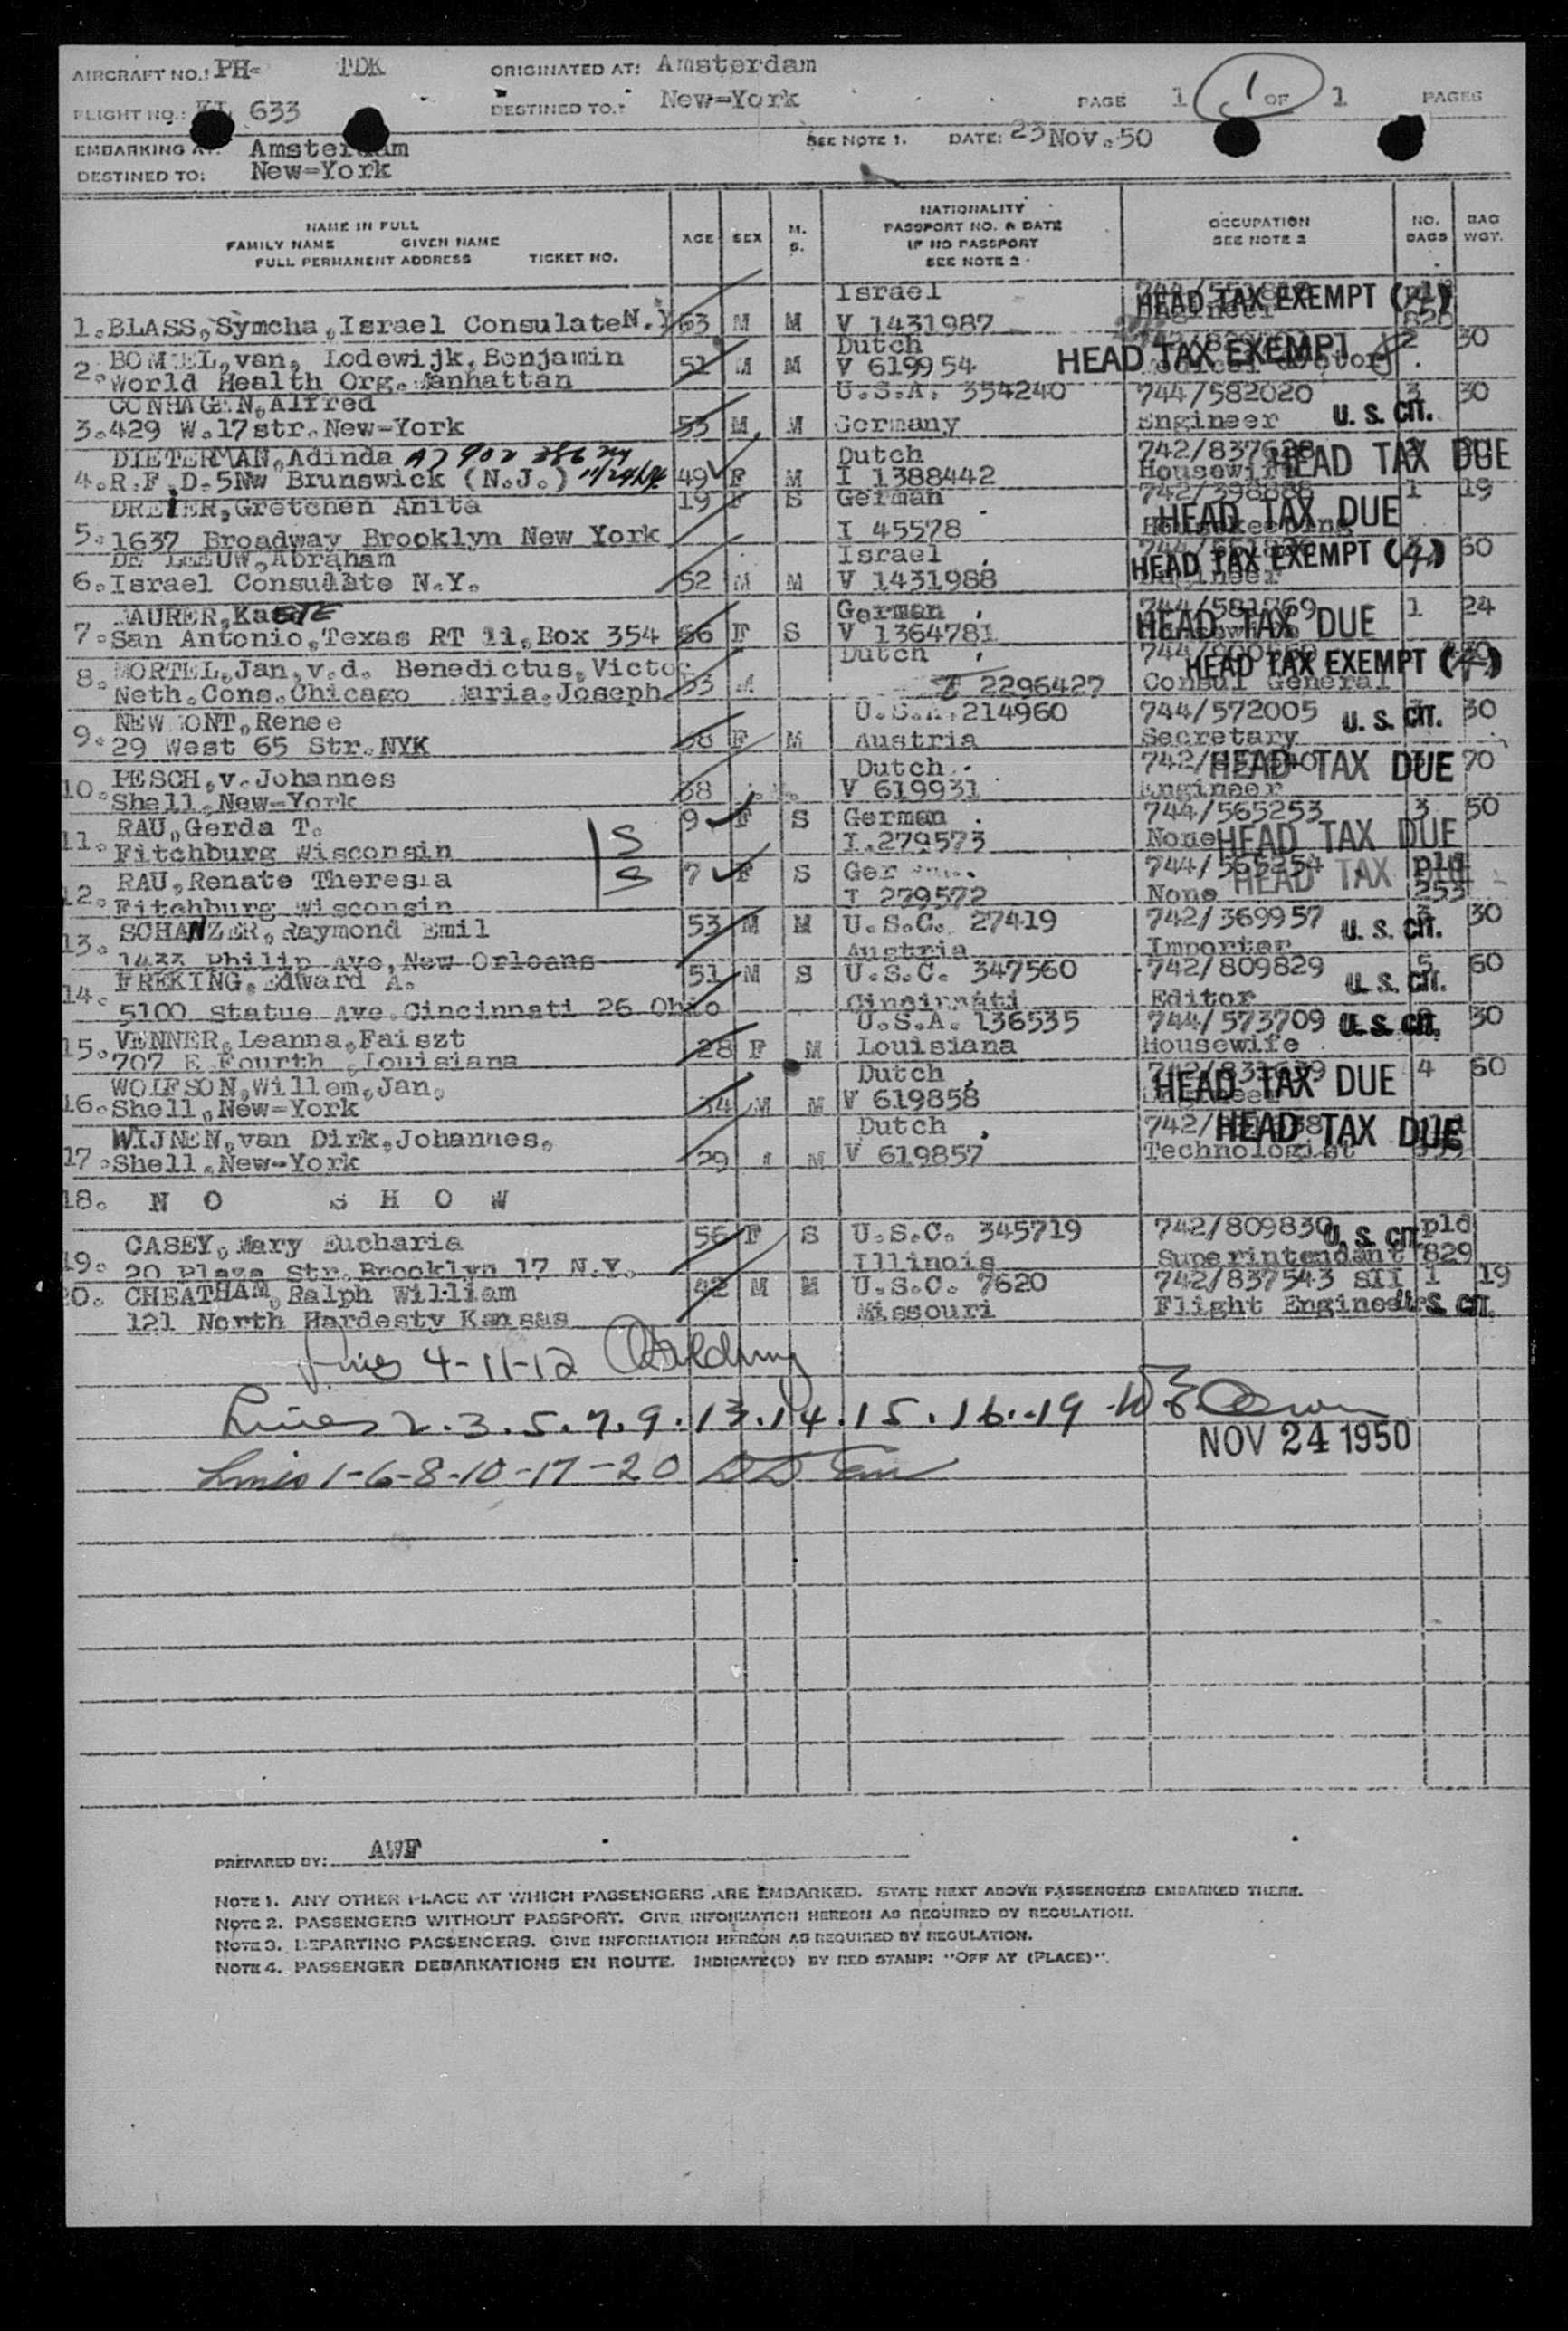 AIRCRAFT NO.: PH- TDK ORIGINATED AT: Amsterdam
FLIGHT NO.: KL 633 DESTINED TO: New-York PAGE 1 1 OF 1 PAGES
EMBARKING AT: Amsterdam SEE NOTE 1. DATE: 23 Nov. 50
DESTINED TO: New-York
NAME IN FULL
FAMILY NAME GIVEN NAME
FULL PERMANENT ADDRESS TICKET NO.
AGE SEX M. S.
NATIONALITY
PASSPORT NO. & DATE
IF NO PASSPORT
SEE NOTE 2
OCCUPATION
SEE NOTE 2
NO. BAGS
BAG WGT.
Israel HEAD TAX EXEMPT
1. BLASS, Symcha, Israel Consulate N.Y 63 M M V 1431987 Engineer
BOMMEL, van, Lodewijk, Benjamin Dutch 2 30
2. World Health Org. Manhattan 51 M M V 619954 HEAD TAX EXEMPT
CONHAGEN, Alfred U.S.A. 354240 744/582020 3 30
3. 429 W. 17 str. New-York 53 M M Germany Engineer U. S. CIT.
DIETERMAN, Adinda Dutch 742/837628
4. R.F.D. 5 Nw Brunswick (N.J.) 49 F M I 1388442 Housewife HEAD TAX DUE
DREIER, Gretchen Anita 19 F S German 742/398888 1 19
5. 1637 Broadway Brooklyn New York I 45578 HEAD TAX DUE
DE LEEUW, Abraham Israel 60
6. Israel Consulate N.Y. 52 M M V 1431988 Engineer HEAD TAX EXEMPT
MAURER, Kaete German 744/581269 1 24
7. San Antonio, Texas RT 11, Box 354 66 F S V 1364781 HEAD TAX DUE
8. MORTEL, Jan, v.d. Benedictus, Victor Dutch HEAD TAX EXEMPT
Neth. Cons. Chicago Maria, Joseph 53 M I 2296427 Consul General
NEWMONT, Renee U.S.A. 214960 744/572005 U. S. CIT. 30
9. 29 West 65 Str. NYK 58 F M Austria Secretary
10. PESCH, v. Johannes Dutch HEAD TAX DUE 70
Shell, New-York 38 V 619931 Engineer
RAU, Gerda T. 9 F S German 744/565253 3 50
11. Fitchburg Wisconsin S I. 279573 None HEAD TAX DUE
RAU, Renate Theresia S 7 F S 744/565254 pld
12. Fitchburg Wisconsin I 279572 None HEAD TAX 253
SCHANZER, Raymond Emil 53 M M U.S.C. 27419 742/369957 U. S. CIT. 3 30
13. 1433 Philip Ave, New Orleans Austria Importer
FREKING, Edward A. 51 M S U.S.C. 347560 742/809829 5 60
14. 5100 Statue Ave. Cincinnati 26 Ohio Cincinnati Editor U. S. CIT.
VENNER, Leanna, Faiszt U.S.A. 136535 744/573709 U. S. CIT. 30
15. 707 E Fourth, Louisiana 28 F M Louisiana Housewife
WOLFSON, Willem, Jan, Dutch HEAD TAX DUE 4 60
16. Shell, New-York 34 M M V 619858
WIJNEN, van Dirk, Johannes, Dutch HEAD TAX DUE
17. Shell, New-York 29 M V 619857 Technologist
18. N O S H O W
CASEY, Mary Eucharia 56 F S U.S.C. 345719 742/809830 U. S. CIT. pld
19. 20 Plaza Str. Brooklyn 17 N.Y. Illinois Superintendant 829
20. CHEATHAM, Ralph William 42 M M U.S.C. 7620 742/837543 SII 1 19
121 North Hardesty Kansas Missouri Flight Engineer U. S. CIT.
Lines 4-11-12
Lines 2.3.5.7.9.13.14.15.16.-19
NOV 24 1950
Lines 1-6-8-10-17-20
PREPARED BY: AWF
NOTE 1. ANY OTHER PLACE AT WHICH PASSENGERS ARE EMBARKED. STATE NEXT ABOVE PASSENGERS EMBARKED THERE.
NOTE 2. PASSENGERS WITHOUT PASSPORT. GIVE INFORMATION HEREON AS REQUIRED BY REGULATION.
NOTE 3. DEPARTING PASSENGERS. GIVE INFORMATION HEREON AS REQUIRED BY REGULATION.
NOTE 4. PASSENGER DEBARKATIONS EN ROUTE. INDICATE(D) BY RED STAMP: "OFF AT (PLACE)".